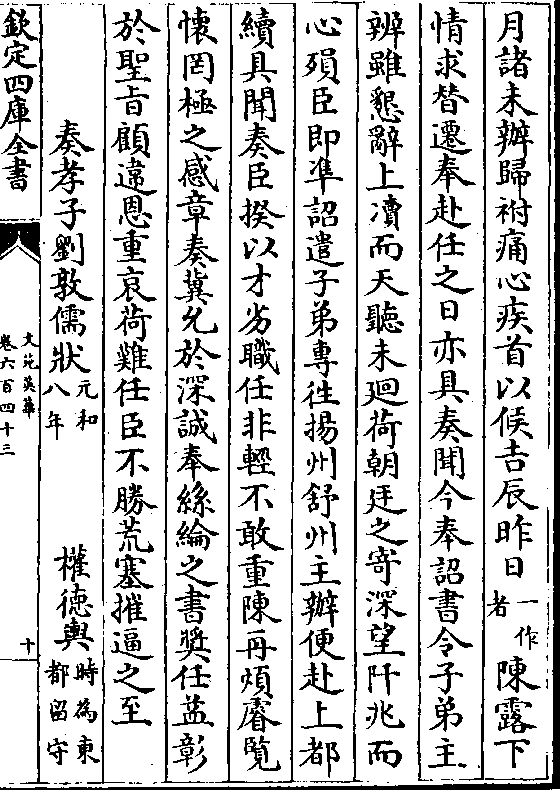 月諸未辦歸祔痛心疾首以候吉辰昨日一作者陳露下
情求替遷奉赴任之日亦具奏聞今奉詔書令子弟主
辦雖懇辭上凟而天聽未廻荷朝廷之寄深望阡兆而
心殞臣即准詔遣子弟專徃揚州舒州主辦便赴上都
續具聞奏臣揆以才劣職任非輕不敢重陳再煩睿覽
懷罔極之感章奏冀允於深誠奉絲綸之書奬任益彰
於聖旨顧違恩重哀荷難任臣不勝荒塞摧逼之至
奏孝子劉敦儒狀元和八年 權德輿時為東都留守
欽定四庫全書
文苑英華
卷六百四十三
十